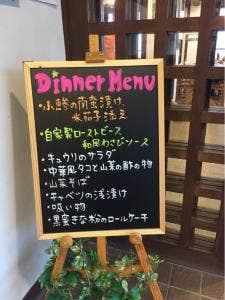 Dinner Menu
・小鯵の南蛮漬け、
水茄子添え
・自家製ローストビーフ
和風わさびソース
・キュウリのサラダ
・中華風タコと山菜の酢の物
・山菜そば
・キャベツの浅漬け
・吸い物
・黒蜜きな粉のロールケーキ